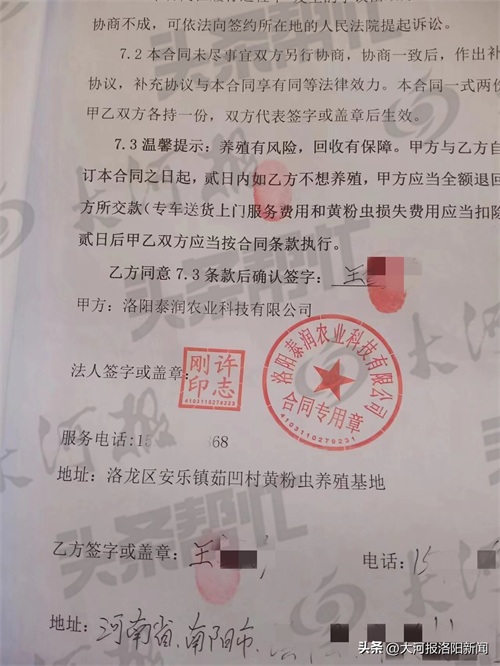 协商不成,可依法向签约所在地的人民法院提起诉讼。
7.2 本合同未尽事宜双方另行协商,协商一致后,作出补
协议,补充协议与本合同享有同等法律效力。本合同一式两份
甲乙双方各持一份,双方代表签字或盖章后生效。
7.3 温馨提示:养殖有风险,回收有保障。甲方与乙方自
订本合同之日起,贰日内如乙方不想养殖,甲方应当全额退回
方所交款(专车送货上门服务费用和黄粉虫损失费用应当扣除
贰日后甲乙双方应当按合同条款执行。
乙方同意 7.3 条款后确认签字: 王
甲方:洛阳泰润农业科技有限公司
法人签字或盖章:
许志刚印
4103110279233
洛阳泰润农业科技有限公司
合同专用章
4103110279231
服务电话:15 68
地址:洛龙区安乐镇茹凹村黄粉虫养殖基地
乙方签字或盖章: 王
电话: 15
地址: 河南省南阳市
头条帮忙
大河报
头条 @大河报洛阳新闻